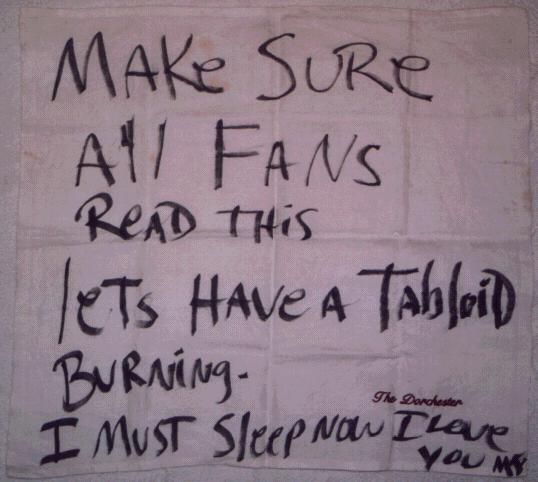 MAKe SURe
All FANS
ReAD THiS
leTs HAVe A TabloiD
BURNiNg.
The Dorchester
I MUST Sleep NOW I love
YOU MJ